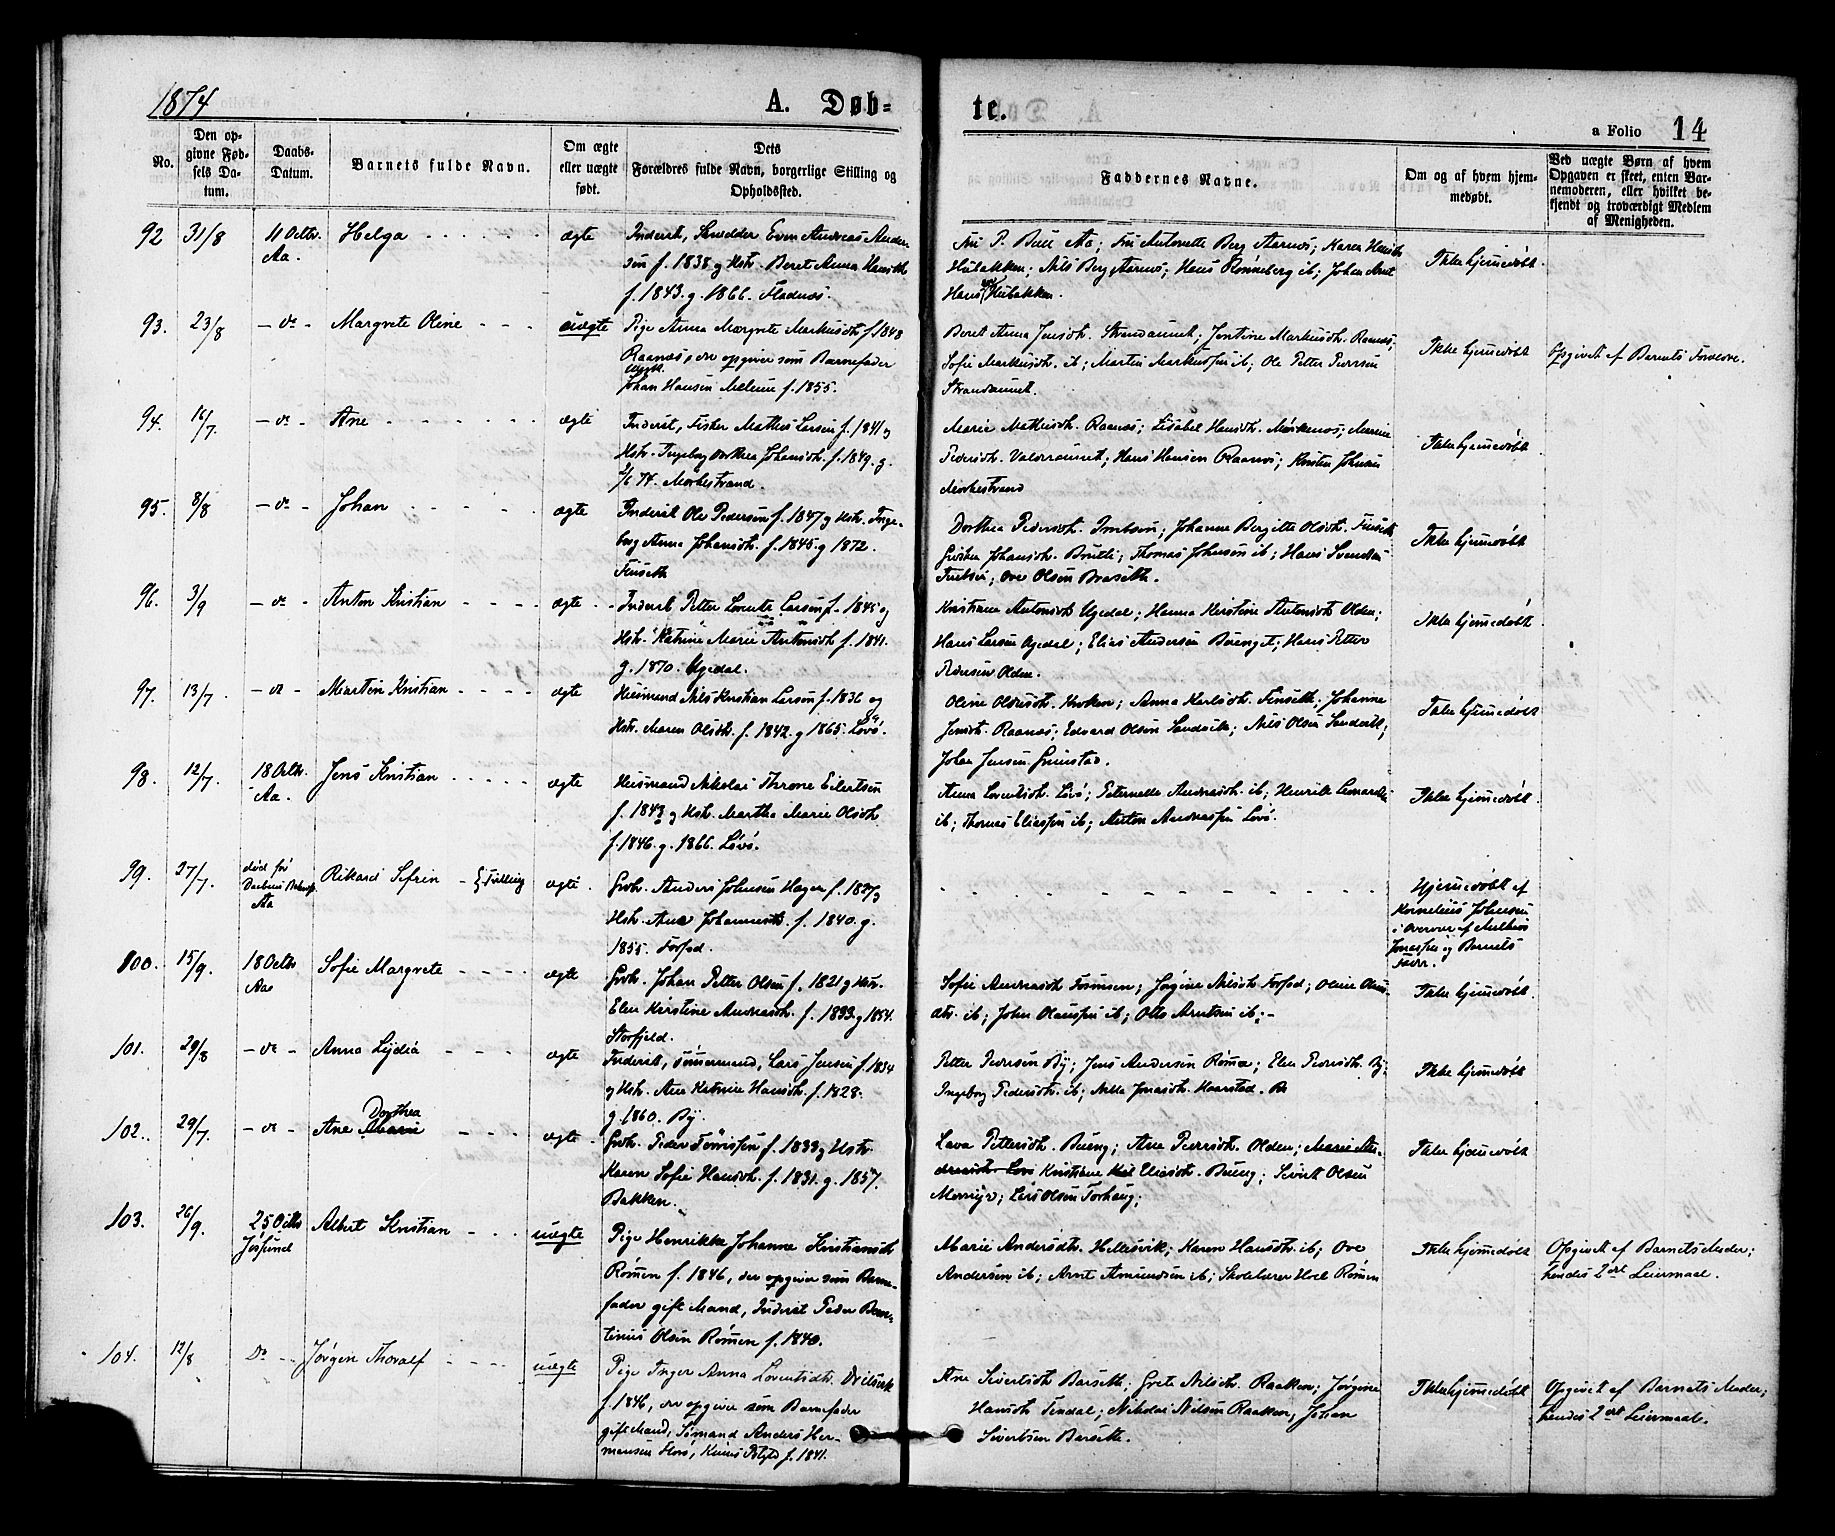 1874
A. Døb-
te.
a Folio 14
No.
Den op-
givne Fød-
sels Da-
tum.
Daabs-
Datum.
Barnets fulde Navn.
Om ægte
eller uægte
født.
Dets
Forældres fulde Navn, borgerlige Stilling og
Opholdssted.
Faddernes Navne.
Om og af hvem hjem-
medøbt.
Ved uægte Børn af hvem
Opgaven er skeet, enten Bar-
nemoderen, eller hvilket be-
kjendt og troværdigt Medlem
af Menigheden.
92 31/8 11 Octbr. Helga ægte
Aa.
Inderst, Smedder Even Andreas Ander-
sen f. 1838 g Hstr. Beret Anna Hansdtr.
f. 1843. g. 1866. Fladnæs.
Fru P. Bull Aa; Fru Antonette Berg Aarnes; Karen Hansdtr.
Hubakken; Nils Berg Aarnes; Hans Rønneberg ib; Johan Arnt
Hans Hubakken.
Ikke hjemedøbt.
93. 23/8 - do - Margrete Oline uægte
Pige Anna Margrete Markusdtr f. 1848
Raanæs, der opgiver som Barnefader
Ungk.
Johan Hansen Melum f. 1855.
Beret Anna Jensdtr. Strandaunet; Jentine Markusdtr. Raanæs;
Sofie Markusdtr. ib; Martin Markussen ib; Ole Petter
Strandaunet.
Ikke hjemedøbt
Opgivet af Barnets Forældre.
94. 16/7. - do - Ane ægte
Inderst, Fisker Mathis Larsen f. 1841 g
Hstr. Ingeborg Dorthea Johansdtr. f. 1849. g.
2/6 74. Mørkestrand.
Marie Mathisdtr. Raanæs; Lisabet Hansdtr. Mørkenæs; Marie
Pedersdtr. Valdraunet; Hans Hansen Raanæs; Kristen Johnsen
Mørkestrand
Ikke hjemedøbt
95. 8/8 - do - Johan ægte
Inderst Ole Pedersen f. 1847 g Hstr. Inge-
borg Anna Johansdtr. f. 1845. g 1872.
Finseth
Dorthea Pedersdtr. Johanne Bergitte Olsdtr. Finseth,
Johansdtr. Thomas Johnsen ib; Hans
Ove Olsen
Ikke hjemedøbt
96. 3/9 - do - Anton Kristian ægte
Inderst Petter Lorents Larsen f. 1845 g
Hstr. Katrine Marie Antonsdtr. f. 1841.
g. 1870. Ugedal.
Kristiane Antonsdtr Ugedal; Hanna Kirstine Antonsdtr. Olden;
Hans Larsen Ugedal; Elias Andersen Buenget; Hans Petter
Pedersen Olden.
Ikke hjemedøbt
97. 13/7. - do - Martin Kristian ægte
Husmand Nils Kristian Larsen f. 1836 g
Hstr. Maren Olsdtr. f. 1842. g 1865. Løvø.
Oline Olsdtr. Kroken; Anna Karlsdtr. Finseth; Johanne
Jensdtr. Raanæs; Edvard Olsen Sandvik; Nils Olsen Sandvik;
Johan Jensen Grinstad.
Ikke hjemedøbt
98. 12/7. 18 Octbr. Jens Kristian ægte
Aa.
Husmand Nikolai Throne Eilertsen
f. 1843 g Hstr. Martha Marie Olsdtr
f. 1846. g. 1866. Løvø.
Anna Lorentsdtr. Løvø; Peternelle Andreasdtr. ib; Henrik
ib; Thomas Eliassen ib; Anton Andreassen Løvø.
Ikke hjemedøbt.
99. 27/7. død før Rikard Sefren - Tvilling ægte
Daabens
Aa
Grbr. Anders Johnsen Hagen f. 1827 g
Hstr. Ane Johannesdtr. f. 1840. g.
1855. Forfod.
Hjemedøbt af
Kornelius Johnsen
i Overvær af Mathias
Jonassen og Barnets
Fader.
100. 15/9. 18 Octbr Sofie Margrete ægte
Aa
Grbr. Johan Petter Olsen f. 1821 g Hstr.
Elen Kirstine Andreasdtr. f. 1833. g 1854.
Storfjeld.
Sofie Andreasdtr Jørgine Nilsdtr. Forfod; Oline Olaus-
dtr. ib; John Olaussen ib; Otto Arntsen ib; -
Ikke hjemedøbt.
101. 29/8 - do - Anna Lydia ægte
Inderst, Tømmermand, Lars Jensen f. 1834
g Hstr. Ane Katrine Hansdtr. f. 1828.
g. 1860. By.
Petter Pedersen By; Jens Andersen Rømen; Elen Pedersdtr. By;
Ingeborg Pedersdtr. ib; Jonasdtr. Haarstad.
Ikke hjemedøbt
102. 29/7. - do - Ane Marie ægte
Dorthea
Grbr. Peder Tønnessen f. 1833 g Hstr.
Karen Sofie Hansdtr. f. 1831. g. 1857.
Bakken.
Lava Pettersdtr. Bueng; Ane Pedersdtr. Olden; Marie An-
dreasdtr. Løvø Kristiane Eliasdtr. Bueng; Sivert Olsen
Lars Olsen Torhaug;
Ikke hjemedøbt
103. 26/9. 25 Octbr Albert Kristian uægte
Jøssund
Pige Henrikke Johanne Kristiansdtr
Rømen f. 1846, der opgiver som Barne-
fader gift Mand, Inderst Peder Beren-
tinus Olsen Rømen f. 1840.
Marie Andersdtr. Hellesvik; Karen Hansdtr. ib; Ove
Andersen ib; Arnt Amundsen ib; Skolelærer Hoel Rømen
Ikke hjemedøbt
Opgivet af Barnets Moder;
hendes 2det Leiermaal.
104. 12/8 Do - Jørgen Thoralf uægte
Pige Inger Anna Lorentsdtr.
f. 1846, der opgiver som Barnefader
gift Mand, Sømand Anders Her-
mansen f. 1841.
Ane Sivertsdtr Barseth; Grete Nilsdtr. Raaken; Jørgine
Hansdtr Nikolai Nilsen Raaken, Johan
Sivertsen Barseth.
Ikke hjemedøbt
Opgivet af Barnets Moder;
hendes 2det Leiermaal.